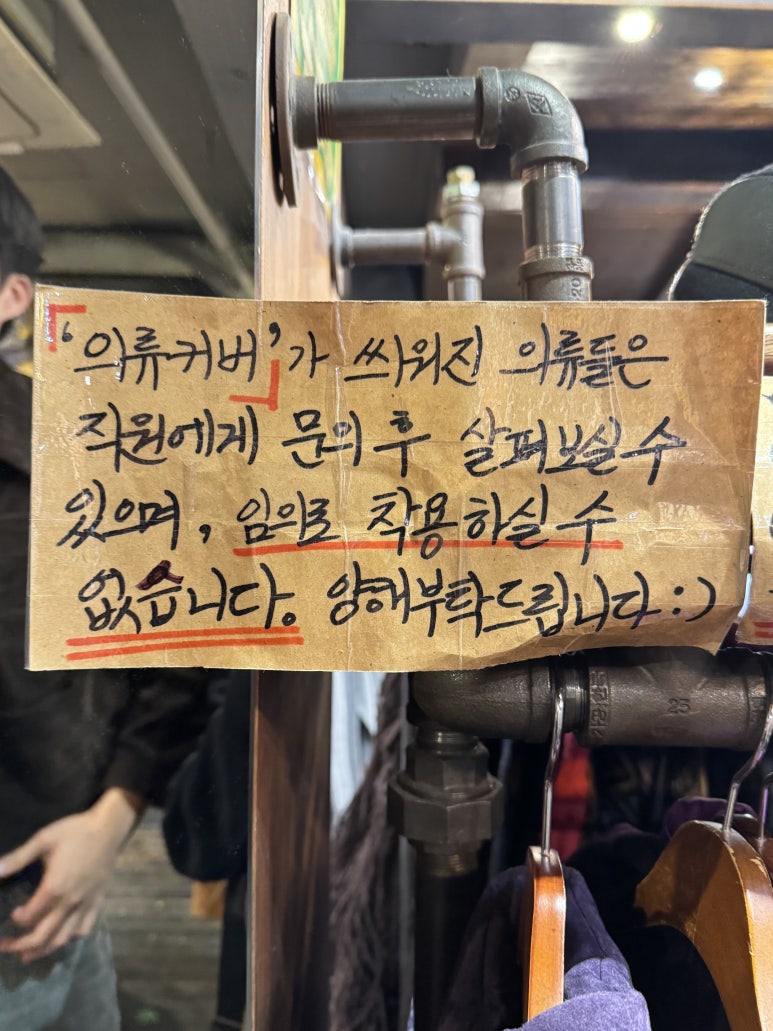 「'의류커버'」가 씌워진 의류들은
직원에게 문의 후 살펴보실 수
있으며, 임의로 착용하실 수
없습니다. 양해부탁드립니다:)
25